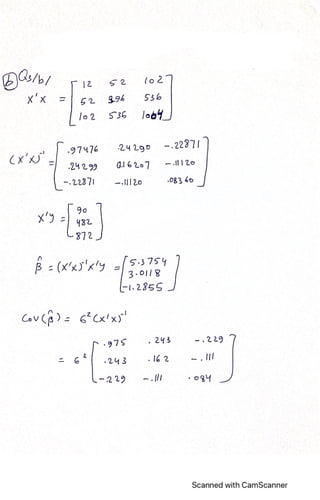 b Q3/b/
12 52 102
X'X = 52 396 536
102 536 1004
.97476 .24290 -.22871
(X'X)⁻¹ = .24299 0.16207 -.11120
-.22871 -.11120 .08360
90
X'y = 482
872
β̂ = (X'X)⁻¹X'y = 5.3754
3.0118
-1.2855
Cov(β̂) = σ²(X'X)⁻¹
.975 .243 -.229
= σ² .243 .162 -.111
-.229 -.111 .084
Scanned with CamScanner